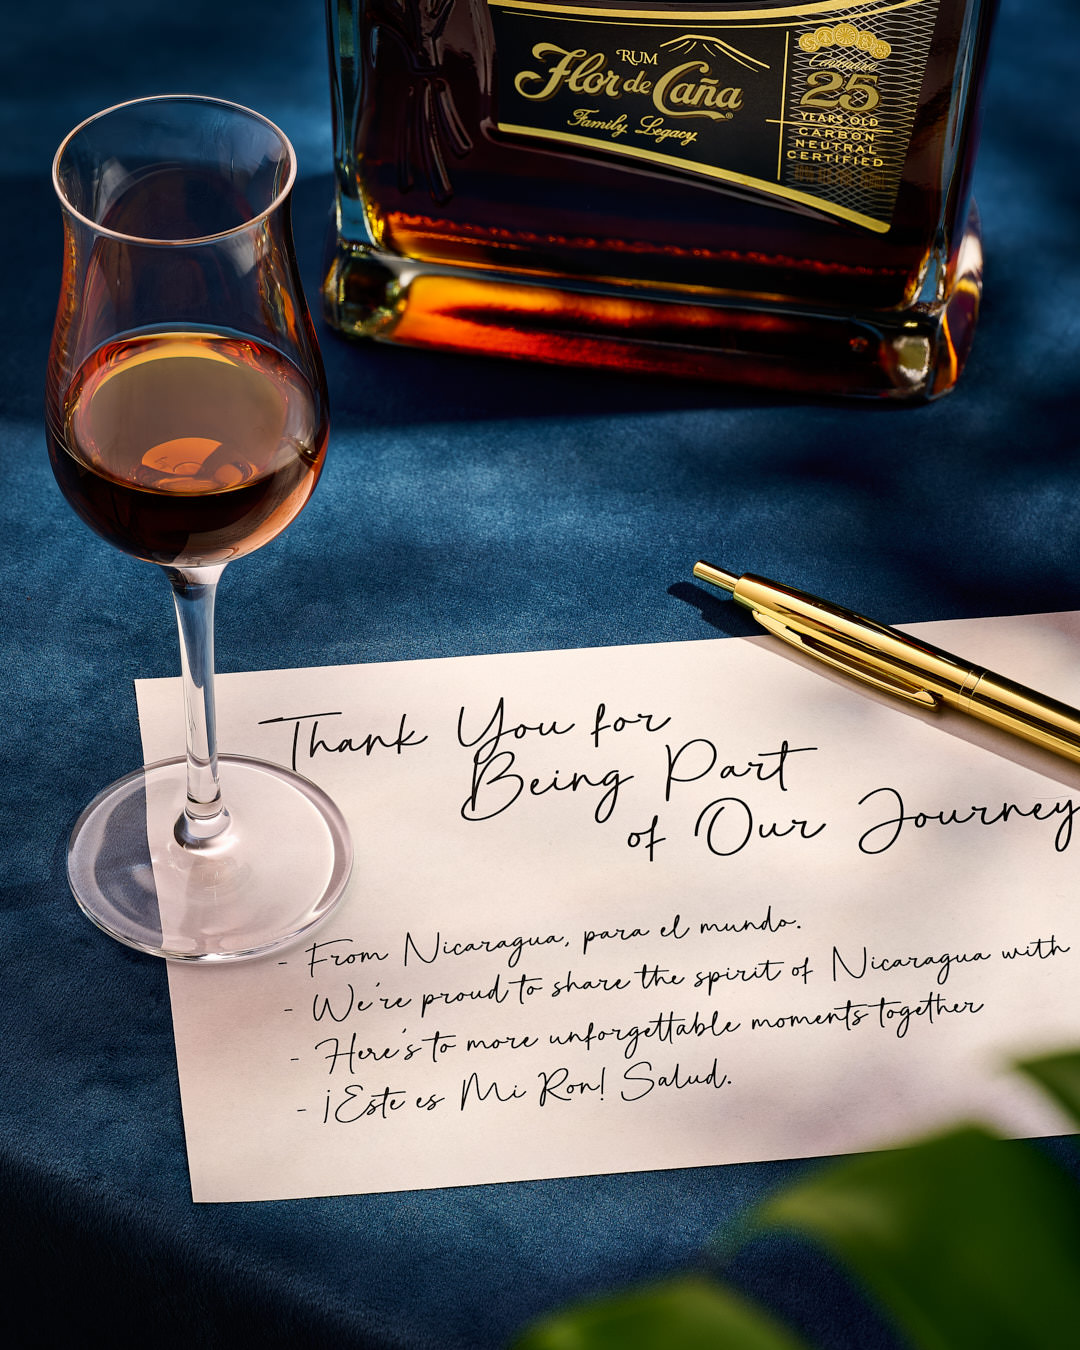 RUM
Flor de Caña
Family Legacy
Centenario
25
YEARS OLD
CARBON
NEUTRAL
CERTIFIED
Thank You for
Being Part
of Our Journey
- From Nicaragua, para el mundo.
- We're proud to share the spirit of Nicaragua with
- Here's to more unforgettable moments together
- ¡Este es Mi Ron! Salud.